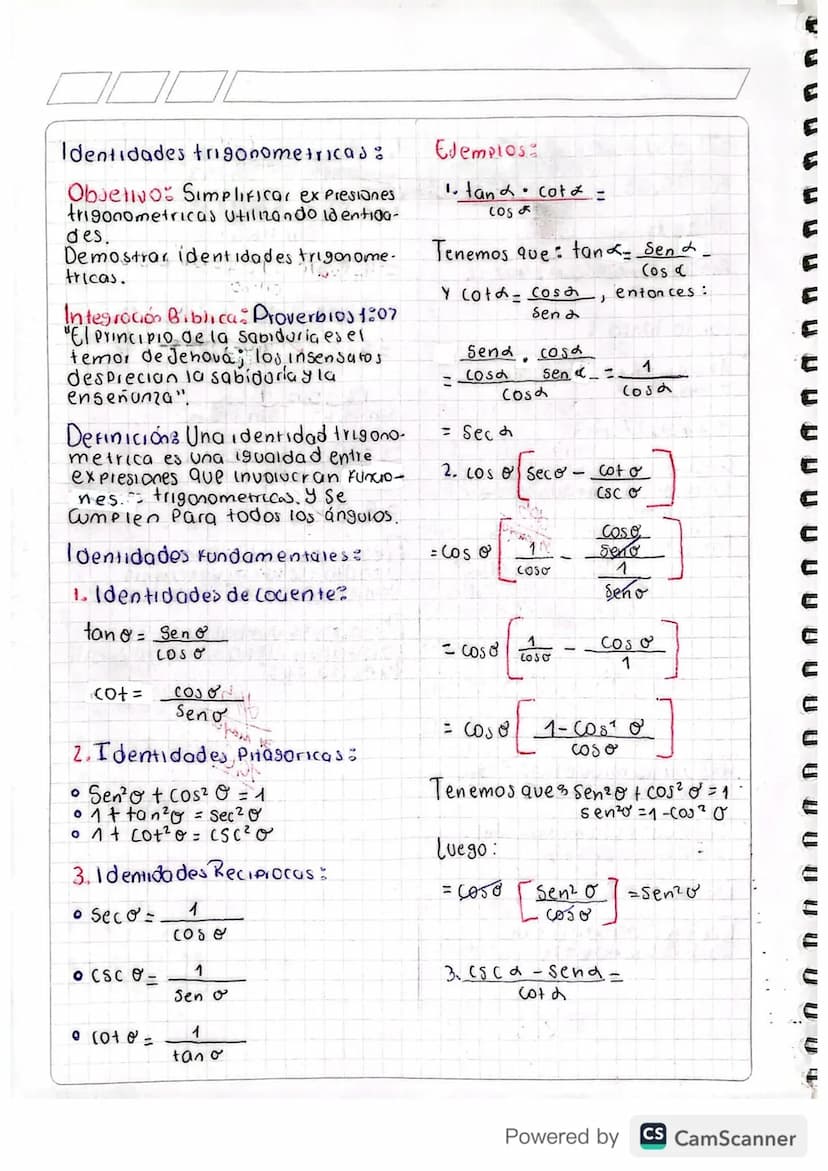 Identidades trigonometricas:
Objetivo: Simplificar expresiones
trigonometricas utilizando identida-
des.
Demostrar identidades trigonome-
tricas.
Integración Biblica: Proverbios 1:07
"El principio de la sabiduria es el
temor de Jehová; los insensatos
desprecian la sabidoría y la
enseñanza".
Definición: Una identidad trigono-
metrica es una igualdad entre
expresiones que involucran funcio-
nes trigonometricas, y se
cumplen para todos los ángulos.
Identidades Fundamentales:
1. Identidades de cociente:
tan θ = Sen θ / cos θ
cot = cos θ / Sen θ
2. Identidades Pitagoricas:
• Sen² θ + cos² θ = 1
• 1 + tan² θ = sec² θ
• 1 + cot² θ = csc² θ
3. Identidades Reciprocas:
• Sec θ = 1 / cos θ
• csc θ = 1 / Sen θ
• cot θ = 1 / tan θ
Ejemplos:
1. tan α · cot α / cos α =
Tenemos que: tan α = Sen α / Cos α
Y cot α = cos α / Sen α, entonces:
= Sen α / cos α · cos α / sen α / Cos α = 1 / cos α
= Sec α
2. cos θ [Sec θ − cot θ / csc θ]
= cos θ [1 / cos θ − cos θ / sen θ / 1 / sen θ]
= cos θ [1 / cos θ − cos θ / 1]
= cos θ [1 - cos² θ / cos θ]
Tenemos que: sen² θ + cos² θ = 1
sen² θ = 1 - cos² θ
Luego:
= cos θ [Sen² θ / cos θ] = sen² θ
3. csc α - sen α / cot α =
Powered by CS CamScanner